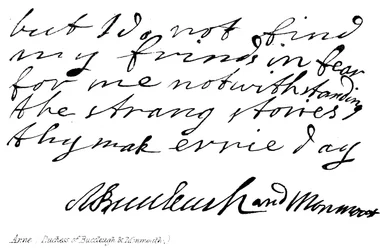 but I do not find
my frinds in fear
for me notwithstanding
the strang stories
thy mak evrie day
ABuccleugh and Monmouth
Anne Duchess of Buccleugh & Monmouth)